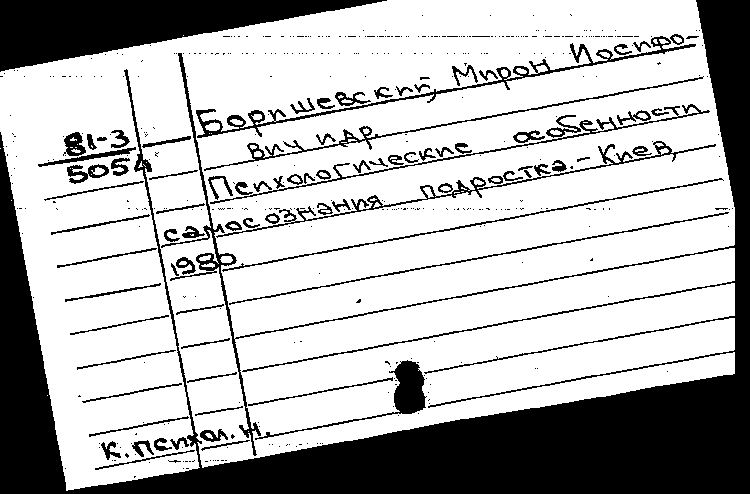 81-3
5054
Боришевский, Мирон Иосифо-
вич и др.
Психологические особенности
самосознания подростка. - Киев,
1980.
К. психол. н.